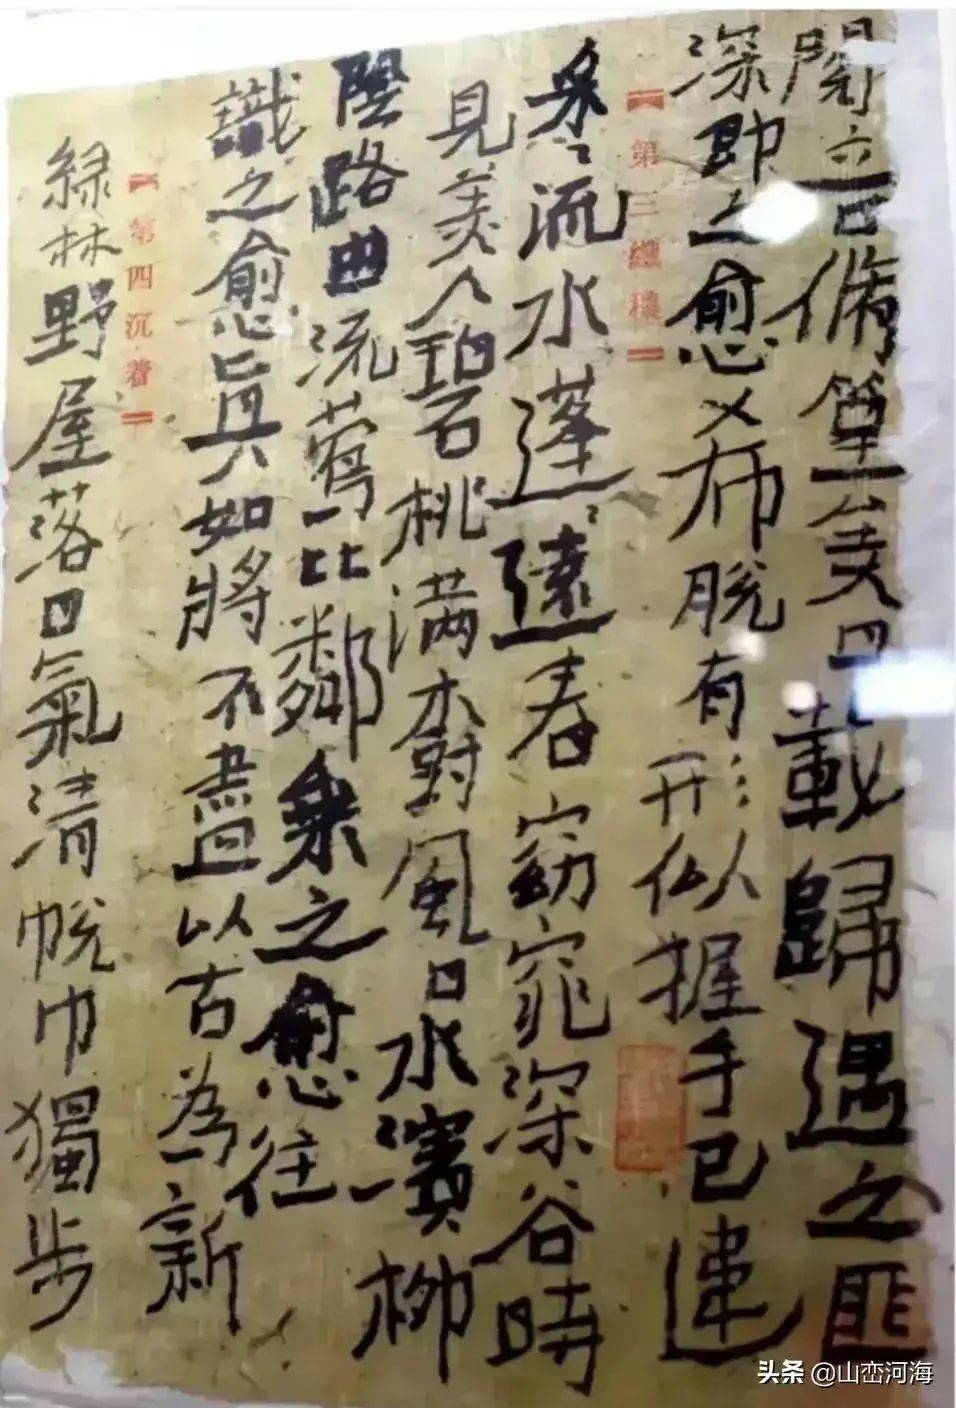 閱音脩篁美曰載歸遇之匪
深即之愈希脫有形似握手已違
第三纖穠
采〻流水蓬〻遠春窈窕深谷時
見美人碧桃满樹風日水濱柳
陰路曲流鶯比鄰乘之愈往
識之愈真如將不盡以古為新
第四沉着
綠林野屋落日氣清帨巾獨步
头条 @山峦河海